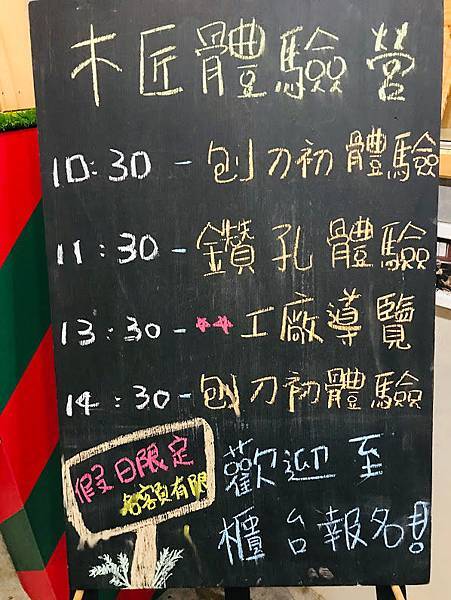 木匠體驗營
10:30 - 刨刀初體驗
11:30 - 鑽孔體驗
13:30 - **工廠導覽
14:30 - 刨刀初體驗
假日限定
名額有限
歡迎至
櫃台報名!